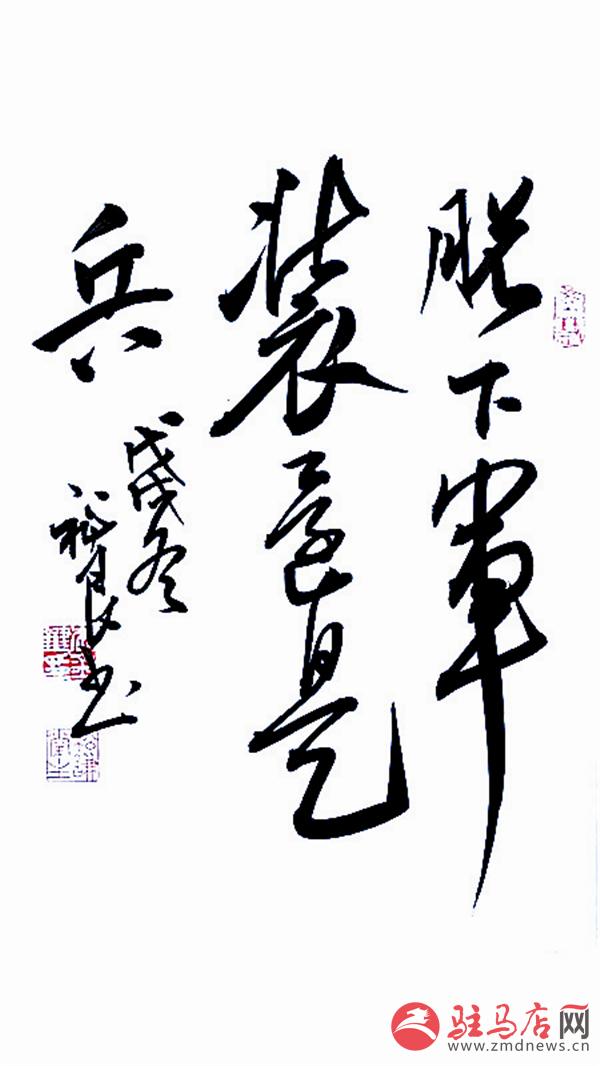 脱下軍
装還是
兵
戊戌冬
书
驻马店网
www.zmdnews.cn